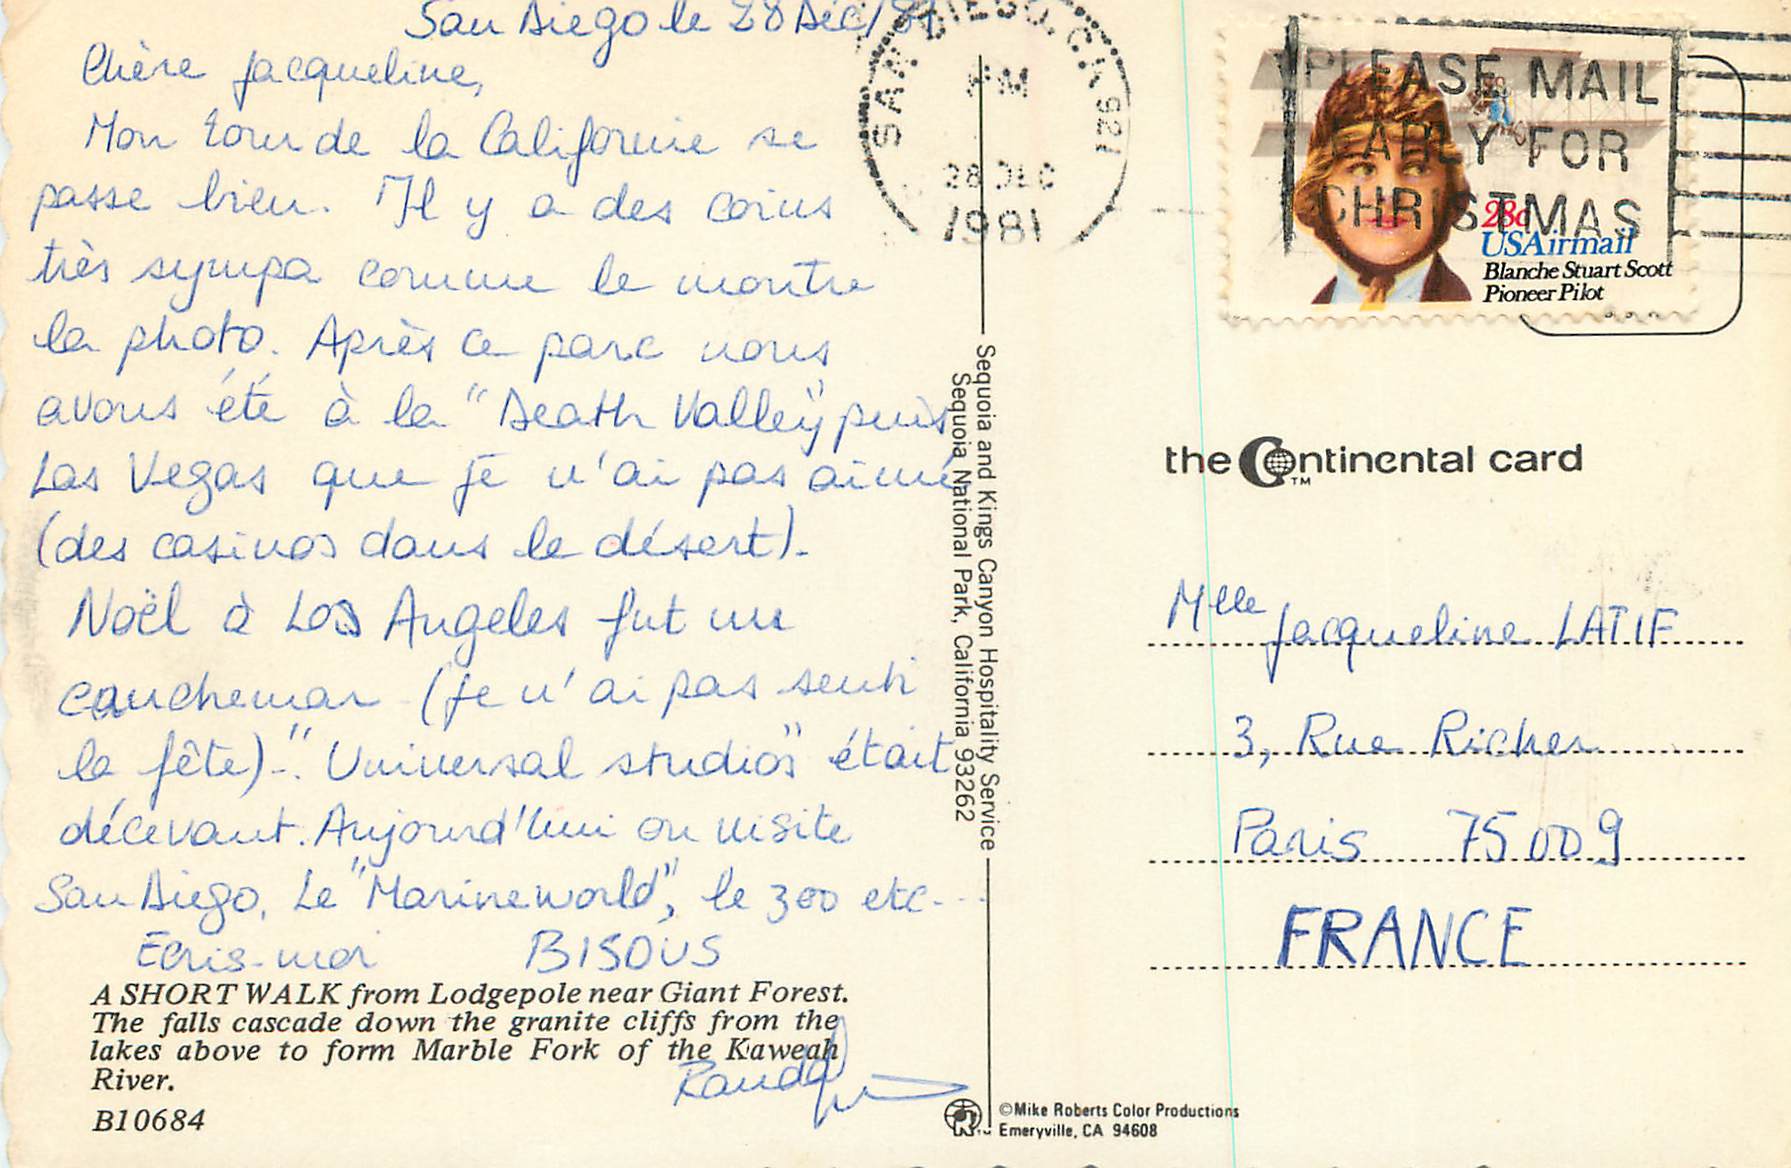 San Diego le 28 Déc/81
Chère Jacqueline,
Mon tour de la Californie se
passe bien. Il y a des coins
très sympa comme le montre
la photo. Après ce parc nous
avons été à la "Death Valley" puis
Las Vegas que je n'ai pas aimé
(des casinos dans le désert).
Noël à Los Angeles fut un
cauchemar (je n'ai pas senti
la fête). "Universal studios" était
décevant. Aujourd'hui on visite
San Diego, Le "Marineworld", le zoo etc...
Ecris-moi BISOUS
A SHORT WALK from Lodgepole near Giant Forest.
The falls cascade down the granite cliffs from the
lakes above to form Marble Fork of the Kaweah
River.
B10684
Sequoia and Kings Canyon Hospitality Service
Sequoia National Park, California 93262
SAN DIEGO, CA 921
PM
28 DEC
1981
PLEASE MAIL
EARLY FOR
CHRISTMAS
28c
USAirmail
Blanche Stuart Scott
Pioneer Pilot
the Continental card
TM
Mlle Jacqueline LATIF
3, Rue Richer
Paris 75009
FRANCE
©Mike Roberts Color Productions
Emeryville, CA 94608